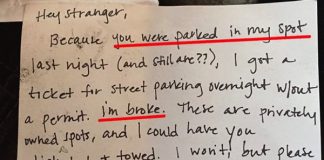 Hey Stranger,
Because you were parked in my spot
last night (and still are??), I got a
ticket for street parking overnight w/out
a permit. I'm broke. These are privately
owned spots, and I could have you
towed. I won't, but please